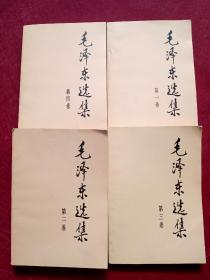 毛泽东选集
第四卷
毛泽东选集
第一卷
毛泽东选集
第二卷
毛泽东选集
第三卷